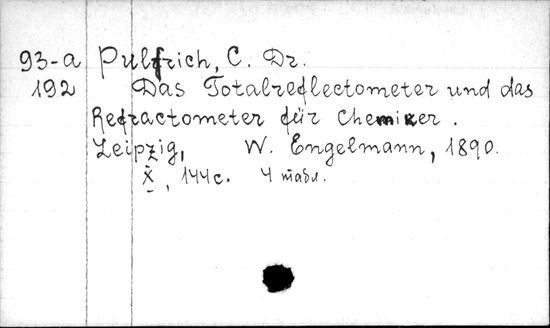 93-a Pulfrich, C. Dr.
192 Das Totalreflectometer und das
Refractometer für Chemiker.
Leipzig, W. Engelmann, 1890.
X, 144 c. 4 табл.